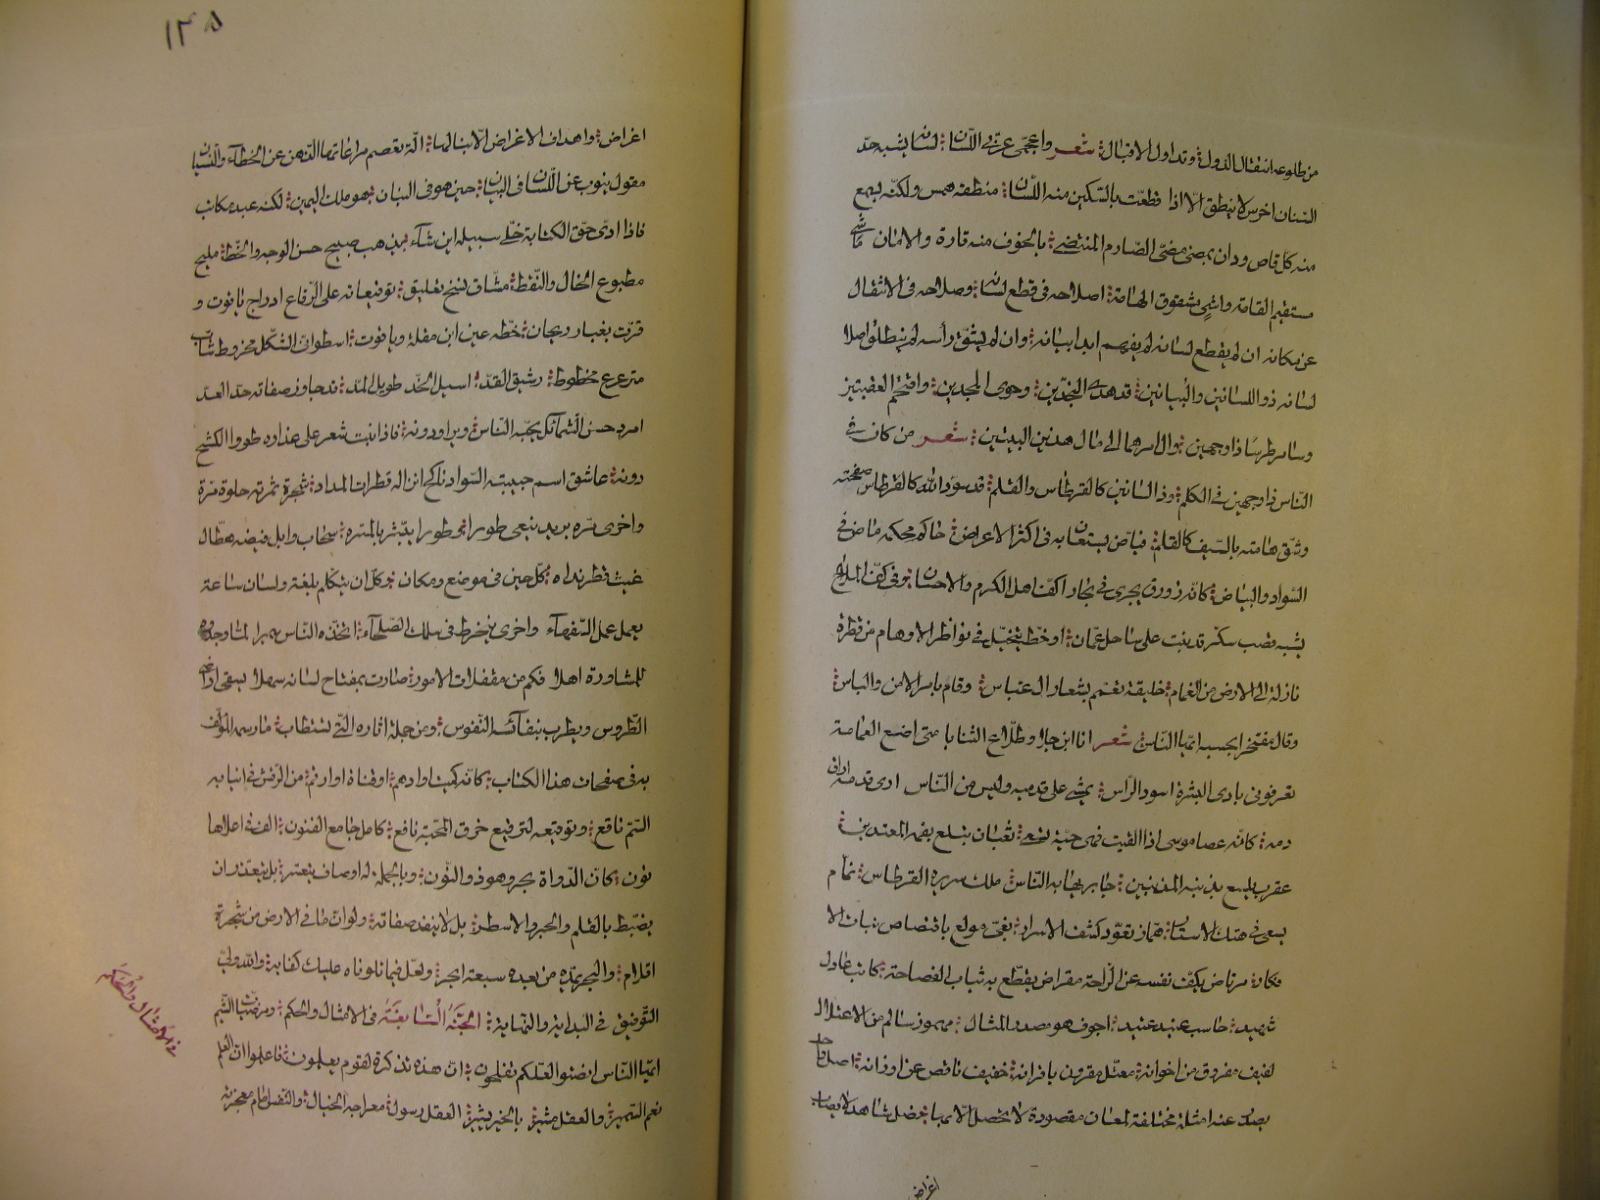 من طلوعه انتقال الدول وتداول الاقبال شعر واعجمى عربى اللسان لسانه يشبه حد
السنان اخرس لا ينطق الا اذا قطعت بالسكين منه اللسان منطقه همس ولكنه يسمع
منه كل قاص ودان يمضى مضى الصارم المنتضى بالخوف منه قارة والامان
مستقيم القامة واغى شقوق الهامة اصلاحه فى قطع لسانه وصلاحه فى الانتقال
عن مكانه ان لم يقطع لسانه لم يفهم ابدا بيانه وان لم يشق رأسه لم ينطلق اصلا
لسانه ذو اللسانين والبيانين قد هدى النجدين وحوى المجدين واقتحم العقبتين
ذا وجهين مال هذين البيتين شعر من كان فى
الناس ذا وجهين فى الكلم وذا لسانين كالقرطاس والقلم قد سود الله كالقرطاس صفحته
وشق هامته بالسيف كالقلم فياض يستعان به فى اكثر الاعراض حاكم محكمه ماض فى
السواد والبياض كانه زورق يجرى فى بحار اكف اهل الكرم والاحسان او فى كف الملاح
يشبه قصب سكر قد ينبت على ساحل عمان او خط يتخيل فى نواظر الاوهام من قطرة
نازلة الى الارض من الغمام خليفة تعمم بشعار ال عباس وقام بامر الامن والباس
وقال مفتخرا بحسبه ايها الناس شعر انا ابن جلا وطلاع الثنايا متى اضع العمامة
تعرفونى بادى البشرة اسود الراس يمشى على قدميه وليس من الناس ادى قدمه اراق
دمه كانه عصا موسى اذا القيت فهى حية تسعى ثعبان يبلع بفمه المعتدين
عقرب يلسع بذنبه المذنبين جابر يهابه الناس ملك سريره القرطاس نمام
يسعى فى هتك الاستار هماز تعود كشف الاسرار مولع باقتصاص بنات الا
فكار مرتاض يكف نفسه عن الراحة مقراض يقطع به ثياب الفصاحة كاتب عادل
شهيد حاسب عنيد عتيد اجوف هو مصدر المثال مهموز سالم من الاعتلال
لفيف مفروق من اخوانه معتل مقرون باقرانه خفيف ناقص عن اوزانه اصل واحد
يصدر عنه امثلة مختلفة لمعان مقصودة لا تحصل الا بها
اغراض
١٣٥
اغراض واهداف الاغراض الا بنالها الة تعصم مراعاتها الذهن عن الخطاء والنسيان
مقول ينوب عن اللسان فى البيان حين هو فى البنان هو ملك اليمين لكنه عبد مكاتب
فاذا ادى حق الكتابة خلى سبيله اين شاء يذهب صبيح حسن الوجه والخط مليح
مطبوع الخال والنقط مشاق نسخ تعليق توقيعاته على الرقاع ادراج ياقوت و
قرت بغبار ريحان خطه عين ابن مقلة وياقوت اسطوانى الشكل مخروط شاب
مترعرع مخطوط رشيق القد اسيل الخد طويل المد قد جاوز صفاته حد العد
امرد حسن الشمائل يحبه الناس ويراودونه فاذا نبت شعر على هذاره طووا الكشح
دونه عاشق اسم حبيبته السواد ناكح انزاله قطرات المداد شجرة ثمرته حلوة مرة
واخرى مره بريد ينعى طورا يبشر بالمسرة سحاب وابل فيضه هطال
غيث قطر نداه كل حين فى موضع ومكان وكل ان يتكلم بلغة ولسان ساعة
يعمل عمل السفهاء واخرى ينخرط فى سلك الصلحاء اتخذه الناس
للمشاورة اهلا فكم من مقفلات الامور صارت بمفتاح لسانه سهلا
الطروس ويطرب بنفائسه النفوس ومن جملة اثاره التى تستطاب ما رسمه المؤلف
به فى صفحات هذا الكتاب كانه كميت او ادهم او قناة او ارقم من الرقش فى انيابه
السم ناقع وتوقيعه لترقيع خرق المحبة نافع كامل جامع الفنون الف اعلاها
نون كان الدواة بحر وهو ذو النون وبالجملة له اوصاف يتعسر بل يتعذر ان
يضبط بالقلم والحبر والاسطر بل لا ينفد صفاته ولو ان ما فى الارض من شجرة
اقلام والبحر يمده من بعده سبعة ابحر ولعل فيما تلوناه عليك كفاية والله ولى
التوفيق فى البداية والنهاية الجنة السابعة فى الامثال والحكم
ايها الناس انصتوا لعلكم تفلحون ان هذه تذكرة لقوم يعلمون فاعلموا ان العلم
نعم السمير والعقل بالخير بشير العقل رسول معراجه الخيال والنفس امام معجزته
فى الامثال والحكم